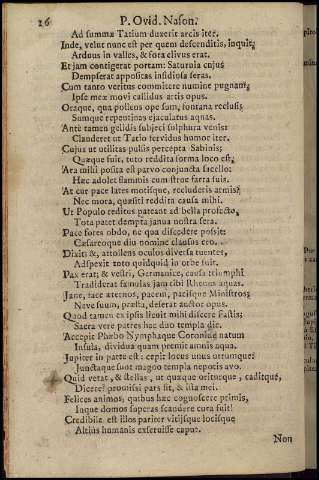 26 P. Ovid. Nason.
Ad summæ Tatium duxerit arcis iter.
Inde, velut nunc est per quem descenditis, inquit,
Arduus in valles, & fora clivus erat.
Et jam contigerat portam: Saturnia cujus
Dempserat appositas insidiosa seras.
Cum tanto veritus committere numine pugnam,
Ipse meæ movi callidus artis opus.
Oraque, qua pollens ope sum, fontana reclusi;
Sumque repentinas ejaculatus aquas.
Ante tamen gelidis subjeci sulphura venis:
Clauderet ut Tatio fervidus humor iter.
Cujus ut utilitas pulsis percepta Sabinis;
Quæque fuit, tuto reddita forma loco est,
Ara mihi posita est parvo conjuncta sacello:
Hæc adolet flammis cum strue farra suis.
At cur pace lates motisque, recluderis armis?
Nec mora, quæsiti reddita causa mihi.
Ut Populo reditus pateant ad bella profecto,
Tota patet dempta janua nostra sera.
Pace fores obdo, ne qua discedere possit:
Cæsareoque diu nomine clausus ero.
Dixit: &, attollens oculos diversa tuentes,
Adspexit toto quidquid in orbe fuit.
Pax erat; & vestri, Germanice, causa triumphi
Tradiderat famulas jam tibi Rhenus aquas.
Jane, face æternos, pacem, pacisque Ministros;
Neve suum, præsta, deserat auctor opus.
Quod tamen ex ipsis licuit mihi discere Fastis:
Sacra vere patres hec duo templa die.
Accepit Phœbo Nymphaque Coronide natum
Insula, dividua quam premit amnis aqua.
Jupiter in parte est: cepit locus unus utrumque:
Junctaque sunt magno templa nepotis avo.
Quid vetat, & stellas, ut quæque oriturque, caditque,
Dicere? promissi pars sit, & ista mei.
Felices animos, quibus hæc cognoscere primis,
Inque domos superas scandere cura fuit!
Credibile est illos pariter vitiisque locisque
Altius humanis exeruisse caput.
Non